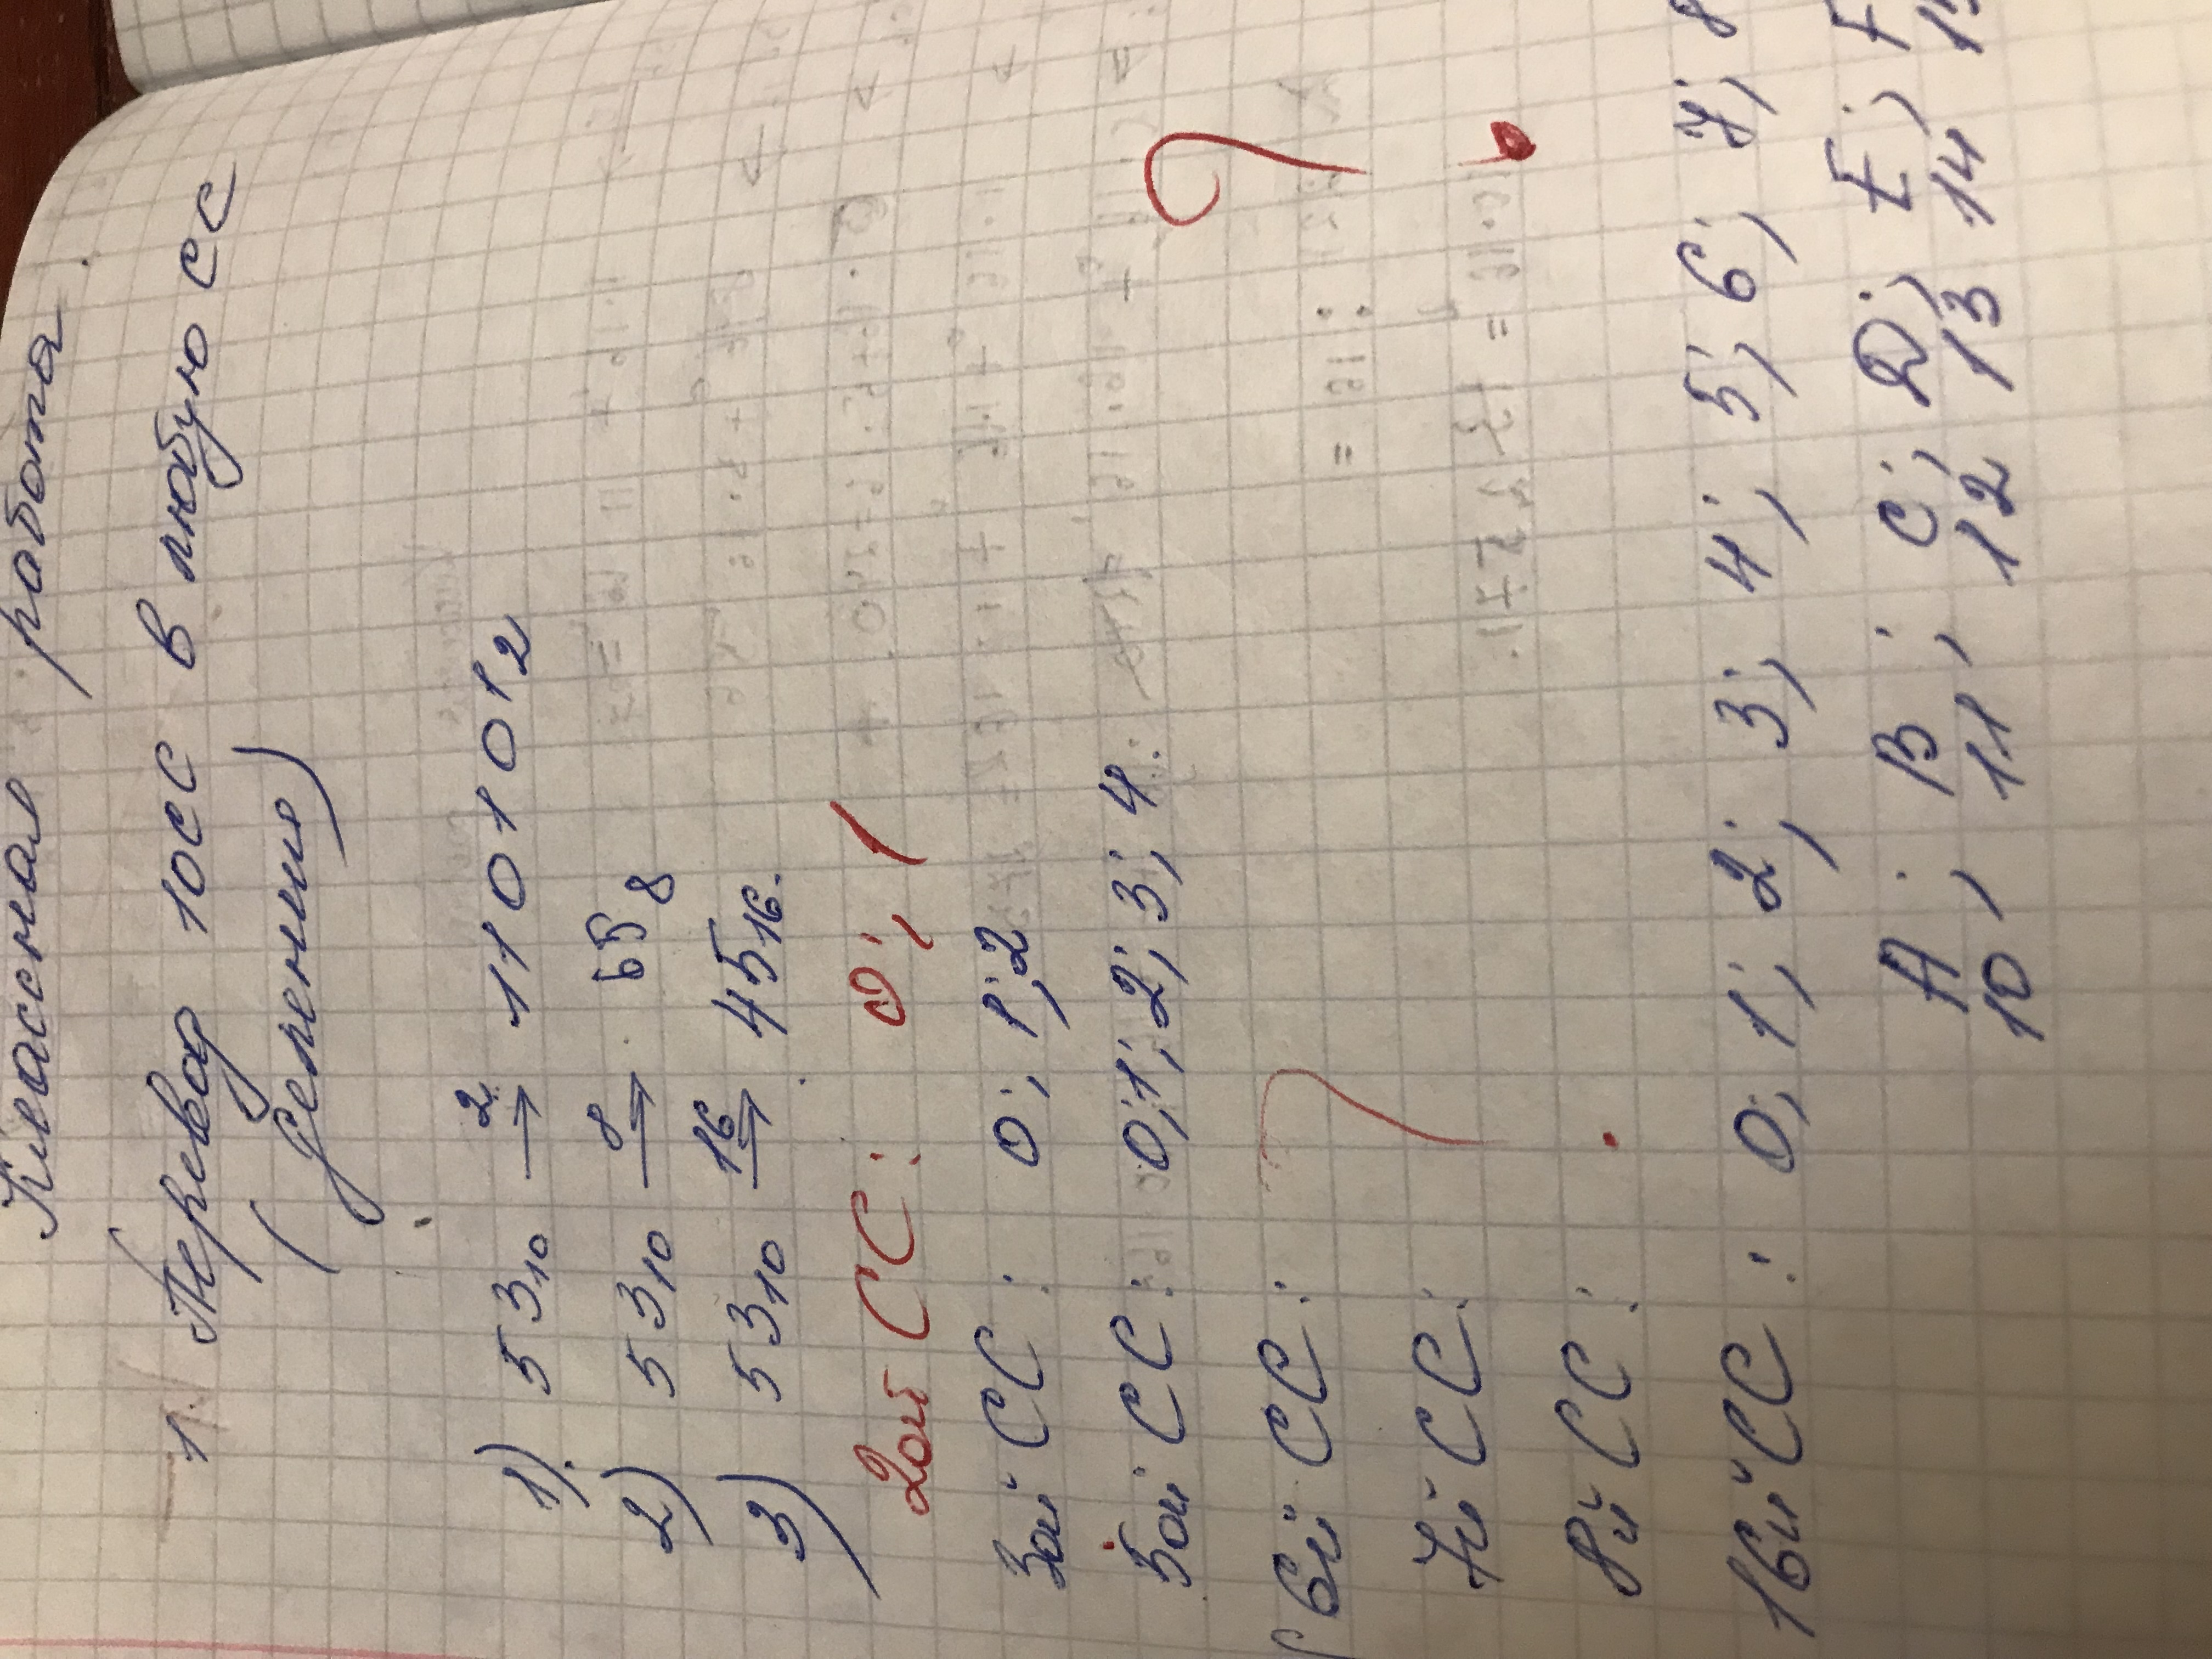 Классная работа.
1. Перевод 10сс в любую сс
(деление)
1). 53₁₀ →² 110101₂
2) 53₁₀ →⁸ 65₈
3) 53₁₀ →¹⁶ 35₁₆.
2ой СС: 0; 1
3ой СС: 0; 1; 2
5ой СС: 0; 1; 2; 3; 4.
6й СС: ?
7й СС:
8й СС:
16й СС: 0; 1; 2; 3; 4; 5; 6; 7; 8
A; B; C; D; E; F
10 11 12 13 14 15